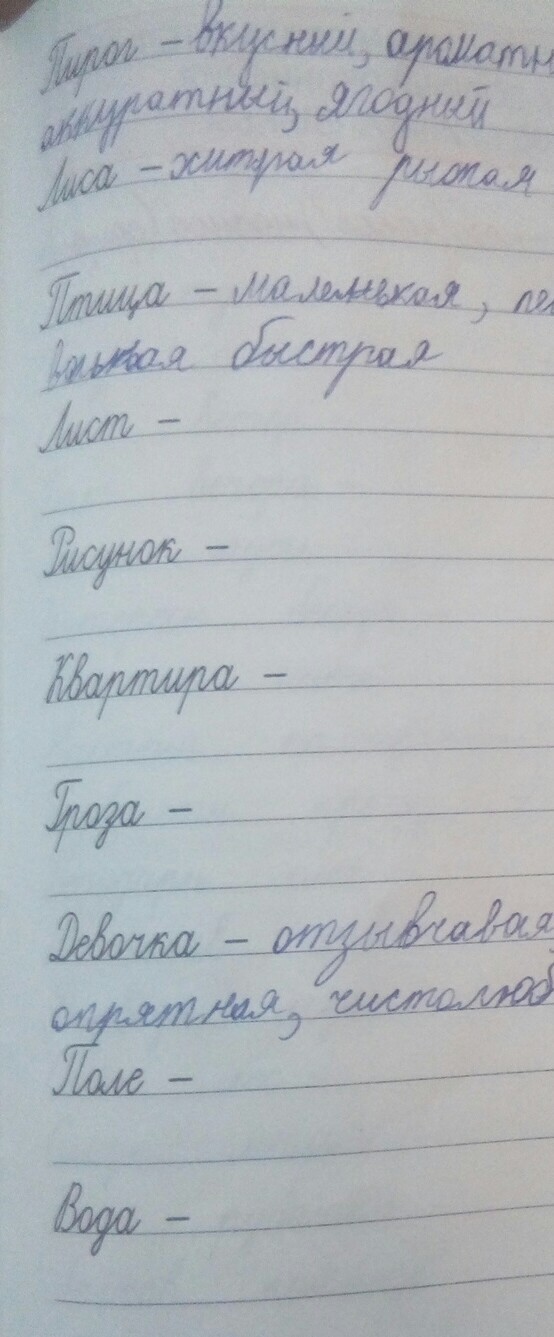 Пирог – вкусный, ароматн
аккуратный, ягодный
Лиса – хитрая рыжая
Птица – маленькая,
быстрая
Лист –
Рисунок –
Квартира –
Гроза –
Девочка – отзывчавая
опрятная, чистолюб
Поле –
Вода –